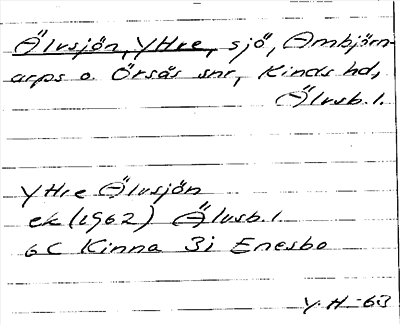 Älvsjön, Yttre, sjö, Ambjörn-
arps o. Örsås snr, Kinds hd,
Älvsb. l.
Yttre Älvsjön
ek (1962) Älvsb. l
6C Kinna 3i Enesbo
Y. H -63